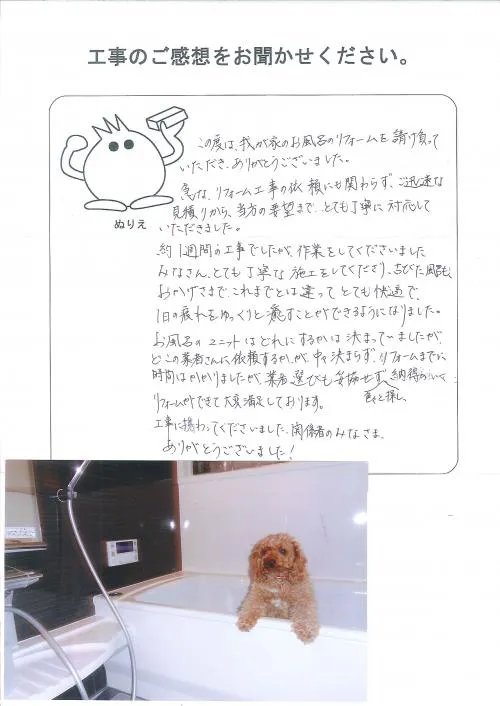 工事のご感想をお聞かせください。
ぬりえ
この度は、我が家のお風呂のリフォームを請け負って
いただき、ありがとうございました。
急な、リフォーム工事の依頼にも関わらず、ご迅速な
見積りから、当方の要望まで、とても丁寧に対応して
いただきました。
約1週間の工事でしたが、作業をしてくださいました
みなさん、とても丁寧な施工をしてくださり、古びた風呂も、
おかげさまで、これまでとは違ってとても快適で、
1日の疲れをゆっくりと癒すことができるようになりました。
お風呂のユニットはどれにするかは決まっていましたが、
どこの業者さんに依頼するかが、中々決まらず、リフォームまでに
時間はかかりましたが、業者選びも妥協せず、納得のいく
色々と探し、
リフォームができて大変満足しております。
工事に携わってくださいました、関係者のみなさま、
ありがとうございました!